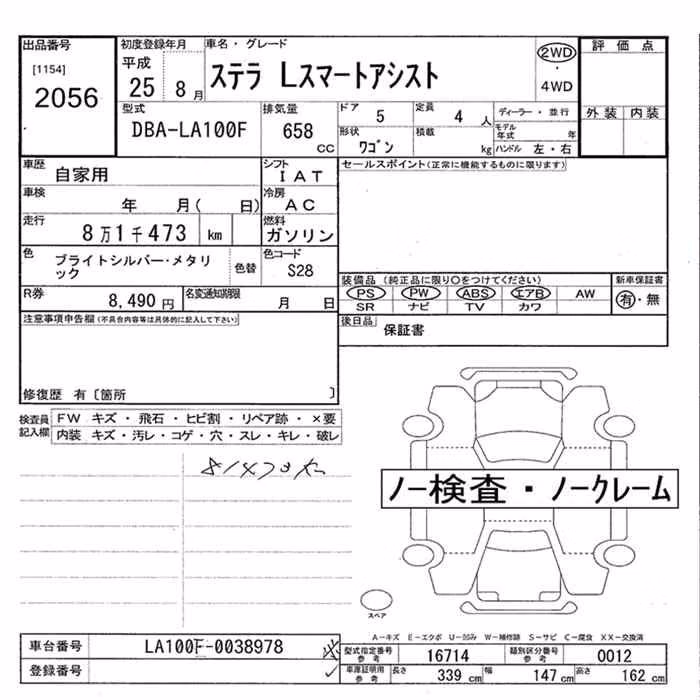 出品番号 初度登録年月 車名・グレード 評価点
[1154] 平成 2WD
2056 25 8月 ステラ Lスマートアシスト ・
4WD
型式 排気量 ドア 5 定員 4人 ディーラー・並行 外装 内装
DBA-LA100F 658cc 形状 ワゴン 積載 kg モデル年式 年
ハンドル 左・右
車歴 自家用 シフト IAT セールスポイント(正常に機能するものに限ります)
車検 年 月( 日) 冷房 AC
走行 8万1千473 km 燃料 ガソリン
色 ブライトシルバー・メタリ 色替 色コード
ック S28
装備品(純正品に限り〇をつけてください) 新車保証書
R券 8,490円 名変通知期限 月 日 PS PW ABS エアB AW 有・無
SR ナビ TV カワ
注意事項申告欄(不具合内容等は具体的に記入して下さい) 後日品 保証書
修復歴 有〔箇所 〕
検査員 FW キズ・飛石・ヒビ割・リペア跡・×要
記入欄 内装 キズ・汚レ・コゲ・穴・スレ・キレ・破レ
81473
ノー検査・ノークレーム
スペア
A-キズ E-エクボ U-凹み W-補修跡 S-サビ C-腐食 XX-交換済
車台番号 LA100F-0038978 型式指定番号参考 16714 類別区分番号参考 0012
登録番号 車庫証明用参考 長さ 339cm 幅 147cm 高さ 162cm